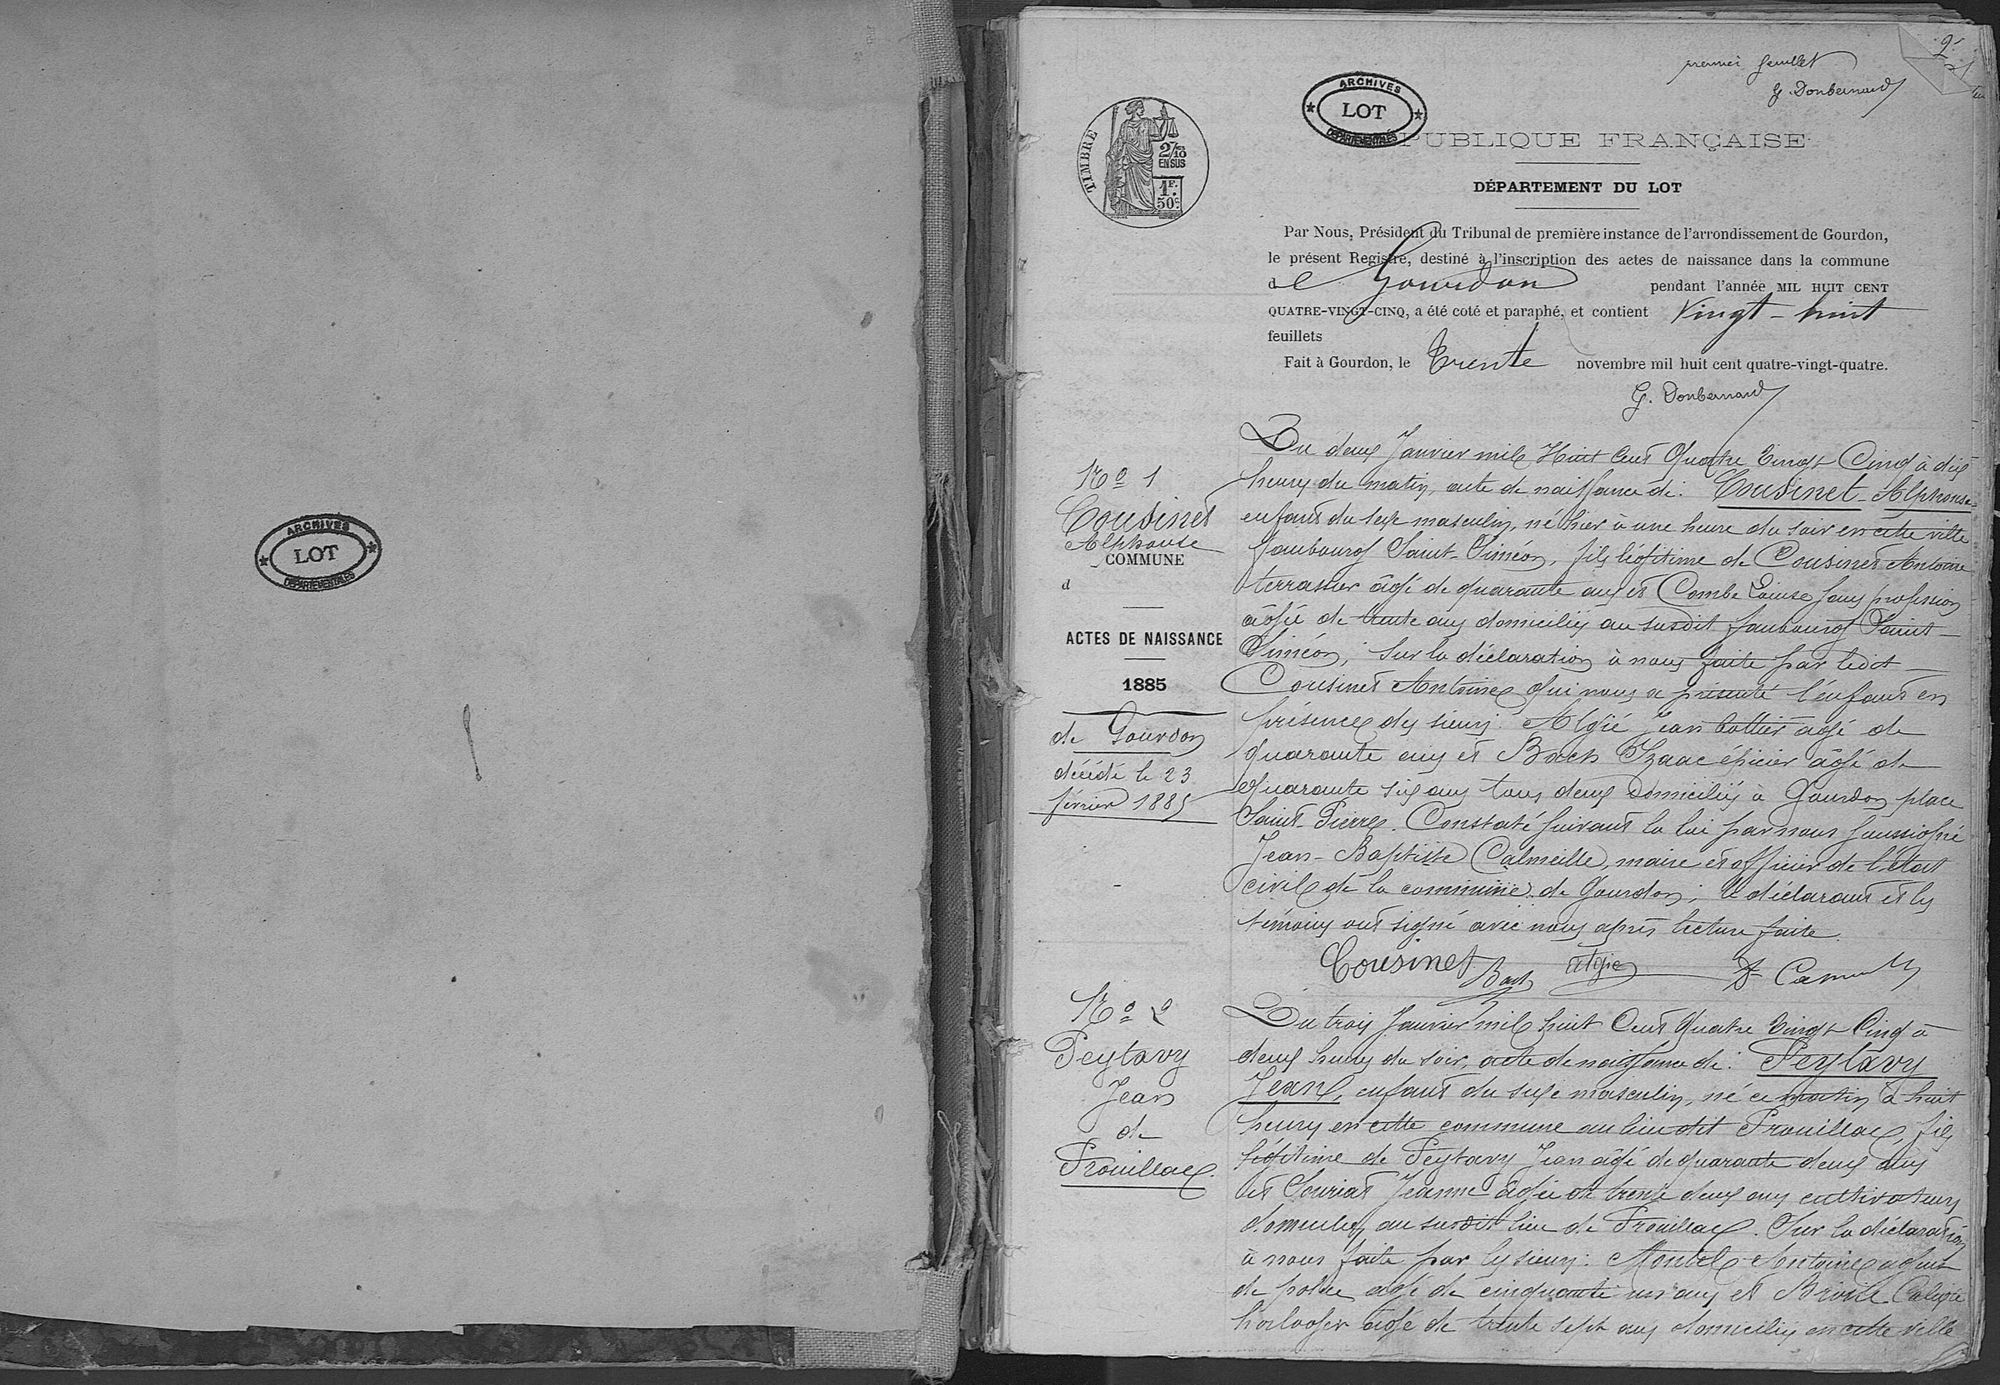 ARCHIVES
LOT
DÉPARTEMENTALES
premier feuillet
G. Donbernard
ARCHIVES
LOT
DÉPARTEMENTALES
TIMBRE
2/10
EN SUS
1F.
50c.
PUBLIQUE FRANÇAISE
DÉPARTEMENT DU LOT
Par Nous, Président du Tribunal de première instance de l'arrondissement de Gourdon,
le présent Registre, destiné à l'inscription des actes de naissance dans la commune
de Gourdon pendant l'année MIL HUIT CENT
QUATRE-VINGT-CINQ, a été coté et paraphé, et contient Vingt-huit
feuillets
Fait à Gourdon, le Trente novembre mil huit cent quatre-vingt-quatre.
G. Donbernard
No 1
Cousinet
Alphonse
COMMUNE
d
ACTES DE NAISSANCE
1885
de Gourdon
décédé le 23
février 1885
Du deux Janvier mil Huit Cent Quatre Vingt Cinq à dix
heures du matin, acte de naissance de: Cousinet Alphonse
enfant du sexe masculin, né hier à une heure du soir en cette ville
faubourg Saint-Siméon, fils légitime de Cousinet Antoine
terrassier âgé de quarante ans et Combe Louise sans profession
âgée de trente ans domiciliés au susdit faubourg Saint-
Siméon; sur la déclaration à nous faite par ledit
Cousinet Antoine qui nous a présenté l'enfant en
présence des sieurs: Algié Jean bottier âgé de
quarante ans et Bach Izaac épicier âgé de
quarante six ans tous deux domiciliés à Gourdon place
Saint-Pierre. Constaté suivant la loi par nous soussigné
Jean-Baptiste Calmeille, maire et officier de l'état
civil de la commune de Gourdon; le déclarant et les
témoins ont signé avec nous après lecture faite.
Cousinet Bach Algié
No 2
Peytavy
Jean
de
Prouillac
Du trois Janvier mil huit Cent Quatre Vingt Cinq à
deux heures du soir, acte de naissance de: Peytavy
Jean, enfant du sexe masculin, né ce matin à huit
heures en cette commune au lieu dit Prouillac, fils
légitime de Peytavy Jean âgé de quarante deux ans
et Souriat Jeanne âgée de trente deux ans cultivateurs
domiciliés au susdit lieu de Prouillac. Sur la déclaration
à nous faite par les sieurs: Montel Antoine agent
de police âgé de cinquante un ans et
horloger âgé de trente sept ans domiciliés en cette ville